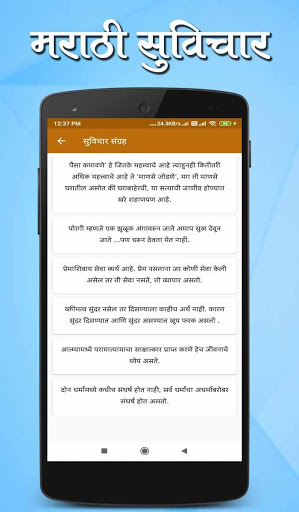 मराठी सुविचार
12:37 PM
...24.3KB/s
सुविचार संग्रह
पैसा कमावणे' हे जितके महत्त्वाचे आहे त्याहूनही कितीतरी
अधिक महत्त्वाचे आहे ते 'माणसे जोडणे', मग ती माणसे
घरातील असोत की घराबाहेरची, या सत्याची जाणीव होण्यात
खरे शहाणपण आहे.
पोरगी म्हणजे एक झुळूक अंगावरून जाते अमाप सुख देवून
जाते ...पण धरून ठेवता येत नाही.
प्रेमाशिवाय सेवा व्यर्थ आहे. प्रेम नसताना जर कोणी सेवा केली
असेल तर ती सेवा नसते, तो व्यापार असतो.
सुंदर नसेल तर दिसण्याला काहीच अर्थ नाही. कारण
सुंदर दिसण्यात आणि सुंदर असण्यात खूप फरक असतो .
आत्म्यामध्ये परमात्म्याचा साक्षात्कार प्राप्त करणे हेच जीवनाचे
ध्येय असते.
दोन धर्मांमध्ये कधीच संघर्ष होत नाही, सर्व धर्मांचा अधर्माबरोबर
संघर्ष होत असतो.